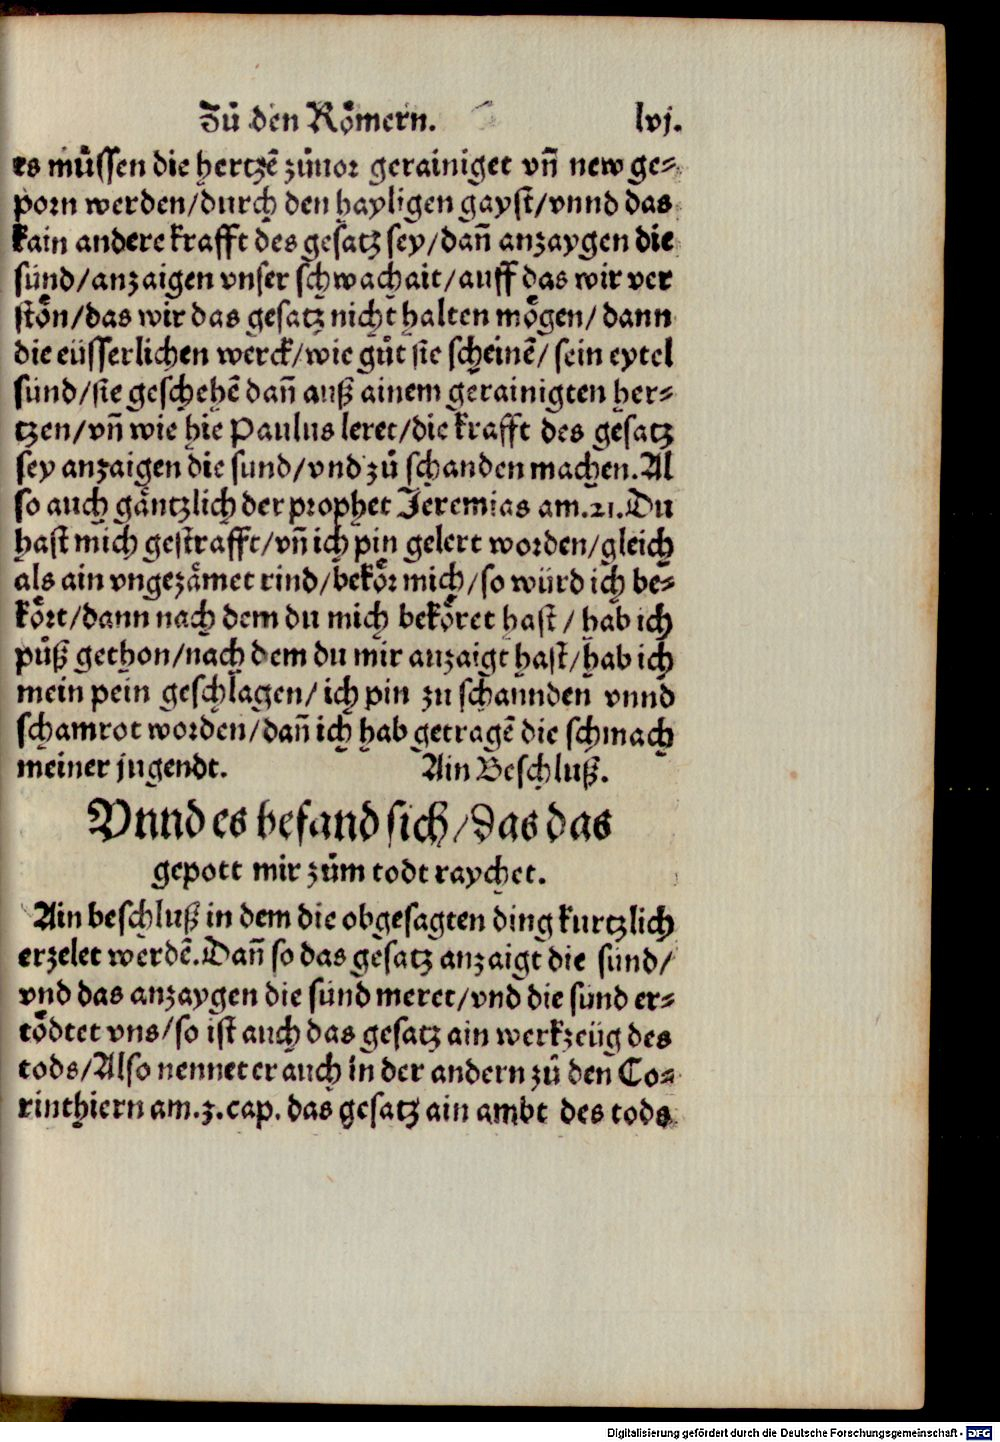 Zů den Römern. lvj.
es müssen die hertzẽ zůuor gerainiget vñ new ge-
porn werden/durch den hayligen gayst/vnnd das
kain andere krafft des gesatz sey/dañ anzaygen die
sünd/anzaigen vnser schwachait/auff das wir ver
stön/das wir das gesatz nicht halten mögen/dann
die eüsserlichen werck/wie gůt sie scheinẽ/sein eytel
sünd/sie geschehẽ dañ auß ainem gerainigten her-
tzen/vñ wie hie Paulus leret/die krafft des gesatz
sey anzaigen die sünd/vnd zů schanden machen. Al
so auch gäntzlich der prophet Jeremias am.21. Du
hast mich gestrafft/vñ ich pin gelert worden/gleich
als ain vngezämet rind/bekör mich/so würd ich be-
kört/dann nach dem du mich beköret hast/hab ich
půß gethon/nach dem du mir anzaigt hast/hab ich
mein pein geschlagen/ich pin zu schannden vnnd
schamrot worden/dañ ich hab getragẽ die schmach
meiner jugendt. Ain Beschluß.
Vnnd es befand sich/das das
gepott mir zům todt raychet.
Ain beschluß in dem die obgesagten ding kurtzlich
erzelet werdẽ. Dañ so das gesatz anzaigt die sünd/
vnd das anzaygen die sünd meret/vnd die sünd er-
tödtet vns/so ist auch das gesatz ain werkzeüg des
tods/Also nennet er auch in der andern zů den Co-
rinthiern am.3.cap. das gesatz ain ambt des tods
Digitalisierung gefördert durch die Deutsche Forschungsgemeinschaft - DFG